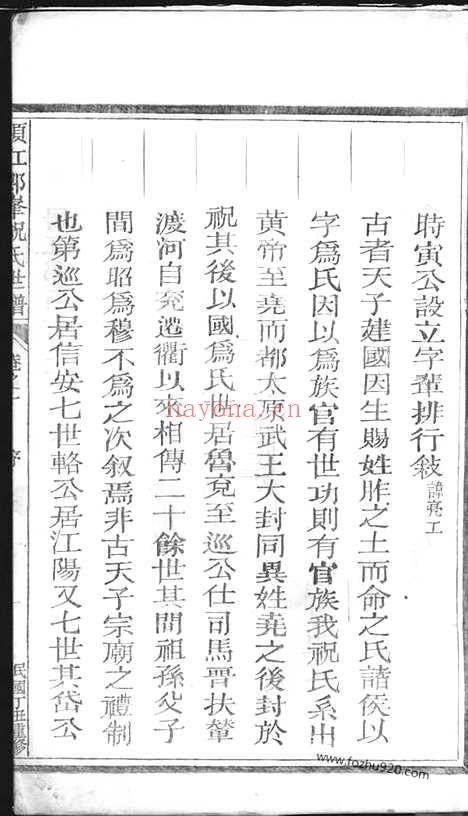 時寅公設立字輩排行敍諱亮工
古者天子建國因生賜姓胙之土而命之氏諸侯以
字爲氏因以爲族官有世功則有官族我祝氏系出
黄帝至堯而都太原武王大封同異姓堯之後封於
祝其後以國爲氏世居魯兗至巡公仕司馬晋扶輦
渡河自兗遷衢以來相傳二十餘世其間祖孫父子
間爲昭爲穆不爲之次叙焉非古天子宗廟之禮制
也第巡公居信安七世輅公居江陽又七世其岱公
須江郎峯祝氏世譜
卷之一
序
民國丁丑重修
nayona.cn
www.fozhu920.com